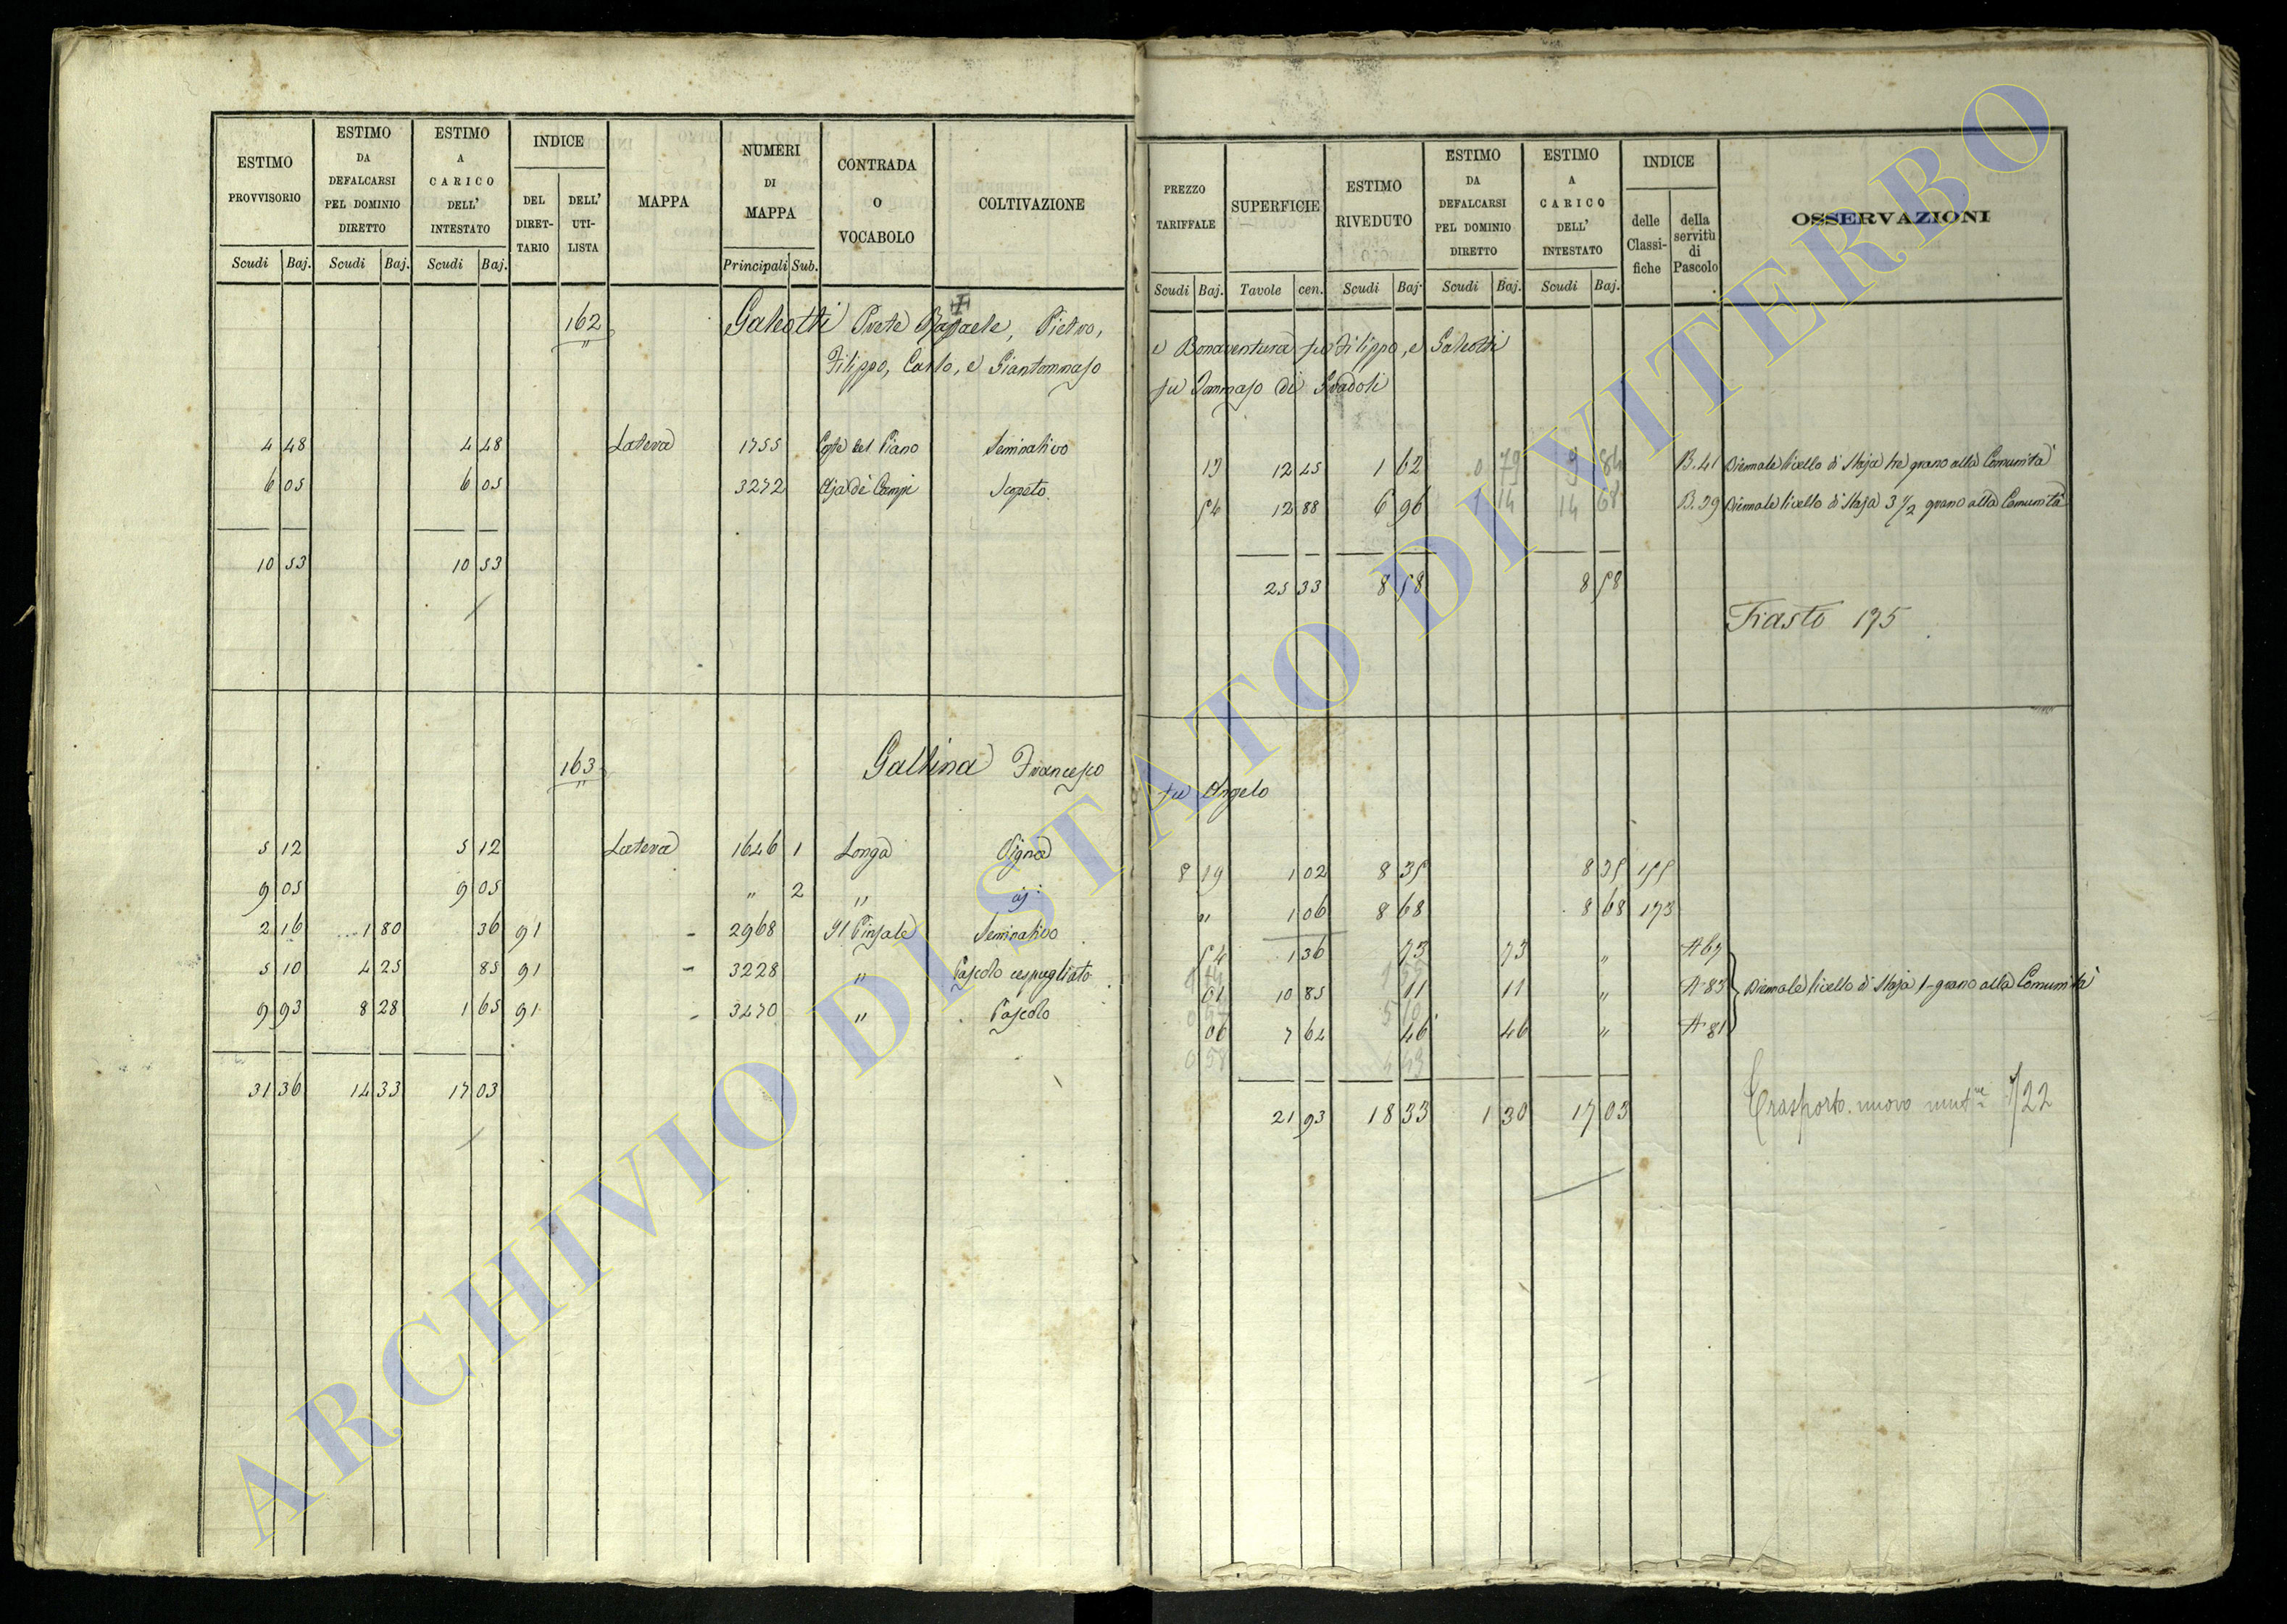 ESTIMO PROVVISORIO | ESTIMO DA DEFALCARSI PEL DOMINIO DIRETTO | ESTIMO A CARICO DELL' INTESTATO | INDICE | MAPPA | NUMERI DI MAPPA | CONTRADA O VOCABOLO | COLTIVAZIONE
DEL DIRETTARIO | DELL' UTILISTA
Scudi | Baj. | Scudi | Baj. | Scudi | Baj. | Principali | Sub.
162 Galeotti Prete Raffaele, Pietro,
Filippo, Carlo, e Giantommaso
4 48 | 4 48 | Latera | 1755 | Coste del Piano | Seminativo
6 05 | 6 05 | 3272 | Aja de Campi | Scopeto
10 53 | 10 53
163 Gallina Francesco
5 12 | 5 12 | Latera | 1646 | 1 | Longa | Vigna
9 05 | 9 05 | " | 2 | "
2 16 | 1 80 | 36 | 91 | - | 2968 | Il Pinzale | Seminativo
5 10 | 4 25 | 85 | 91 | - | 3228 | " | Pascolo cespugliato
9 93 | 8 28 | 1 65 | 91 | - | 3470 | " | Pascolo
31 36 | 14 33 | 17 03
PREZZO TARIFFALE | SUPERFICIE | ESTIMO RIVEDUTO | ESTIMO DA DEFALCARSI PEL DOMINIO DIRETTO | ESTIMO A CARICO DELL' INTESTATO | INDICE | OSSERVAZIONI
delle Classifiche | della servitù di Pascolo
Scudi | Baj. | Tavole | cen. | Scudi | Baj. | Scudi | Baj. | Scudi | Baj.
e Bonaventura fu Filippo, e Galeotti
fu Tommaso di Gradoli
13 | 12 45 | 1 62 | 0 79 | B. 41 | Biennale livello di Staja tre grano alla Comunità
54 | 12 88 | 6 96 | 1 14 | 14 68 | B. 39 | Biennale livello di Staja 3 1/2 grano alla Comunità
25 33 | 8 58 | 8 58
Fiasto 175
fu Angelo
8 19 | 1 02 | 8 35 | 8 35 | 155
" | 1 06 | 8 68 | 8 68 | 173
54 | 1 36 | 73 | 73 | " | A 67
01 | 10 85 | 11 | 11 | " | A 83 | Biennale livello di Staja 1 - grano alla Comunità
06 | 7 64 | 46 | 46 | " | A 81
21 93 | 18 33 | 1 30 | 17 03
Trasporto nuovo 1/22
ARCHIVIO DI STATO DI VITERBO